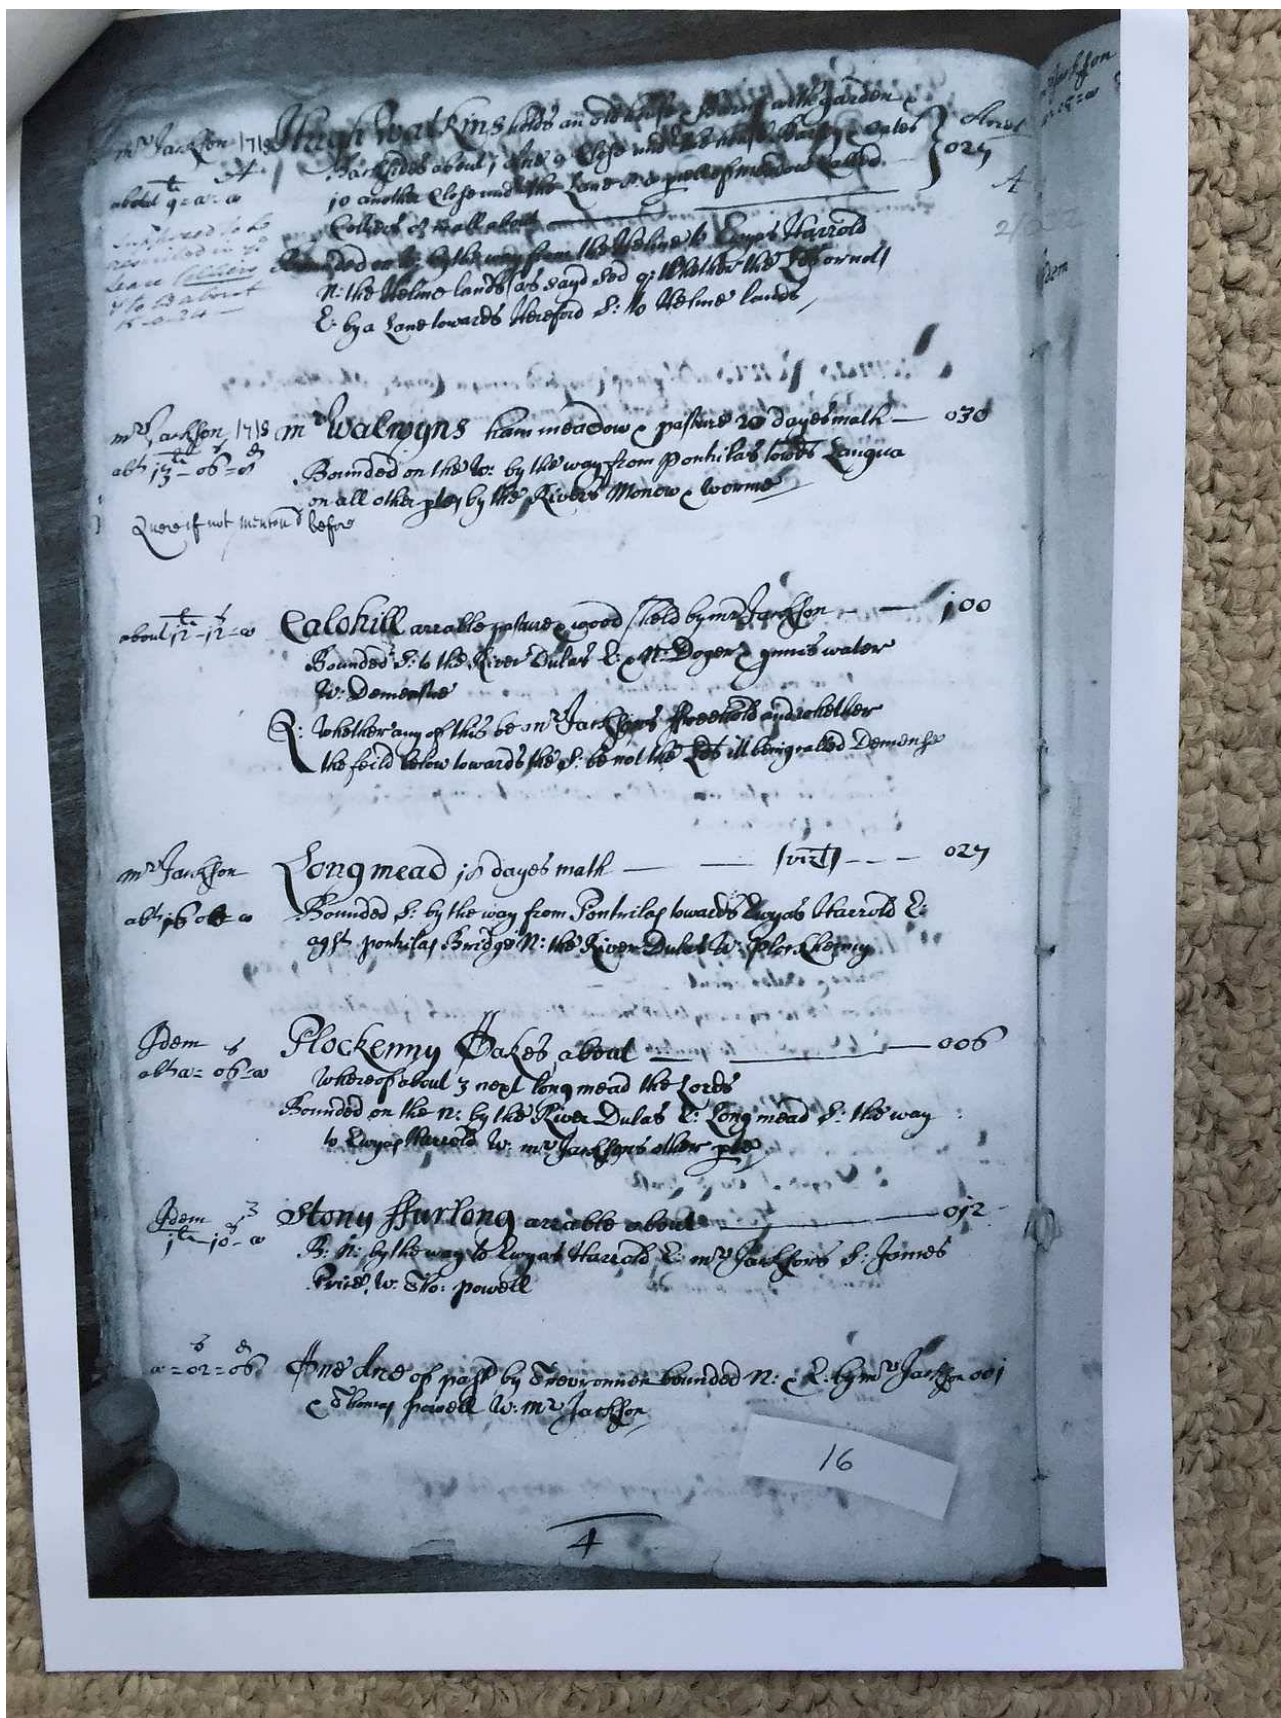 mr Jackson 1718 Hugh Watkins holds an old house & Barne with garden &
Backsides about 1 Acre 9 Close und the house Barly & oates
10 another Close und the Lane & a pcell of meadow called
Colliers in all about
Acres
027
A
about 9 = a = a
Bounded on by the way from the Helme to Ewyas Harrold
N: the Helme lands (as sayd sed q: Whether the Lds or not)
E: by a Lane towards Hereford S: to Helme lands
supposed to be
Colliers
mr Jackson 1718 mr Walwyns ham meadow & pasture 20 dayes math — 030
abt 13 - 06 = 8
Bounded on the W: by the way from Pontrilas towds Langua
on all other ptes by the Rivers Monow & Worme
Quere if not mentond before
about 12 - 12 = a Calohill arrable pasture & wood (held by mr Jackson — — 100
Bounded S: to the River Dulas E: & N: Doger & gunis water
W: Demeasne
Q: Whether any of this be mr Jacksons ffreehold and whether
the feild below towards the S: be not the Lds ill being called Demense
mr Jackson Long mead 18 dayes math — — (vizt) - - - 027
abt 16
Bounded S: by the way from Pontrilas towards Ewyas Harrold E:
agst pontrilas Bridge N: the River Dulas W: Plockkenny
Idem Plockenny Oakes about — 006
abt a = 06 = a
Whereof about 3 next long mead the Lords
Bounded on the N: by the River Dulas E: Long mead S: the way
to Ewyas Harrold W: mr Jacksons other pte
Idem Stony ffurlong arrable about — 012
1 - 10 - a
B: N: by the way to Ewyas Harrold E: mr Jacksons S: James
Price W: Tho: powell
a = 02 = 06 One Acre of past by Trewronnen bounded N: & E: by mr Jackson 001
& Thomas powell W: mr Jackson
16
4
Idem